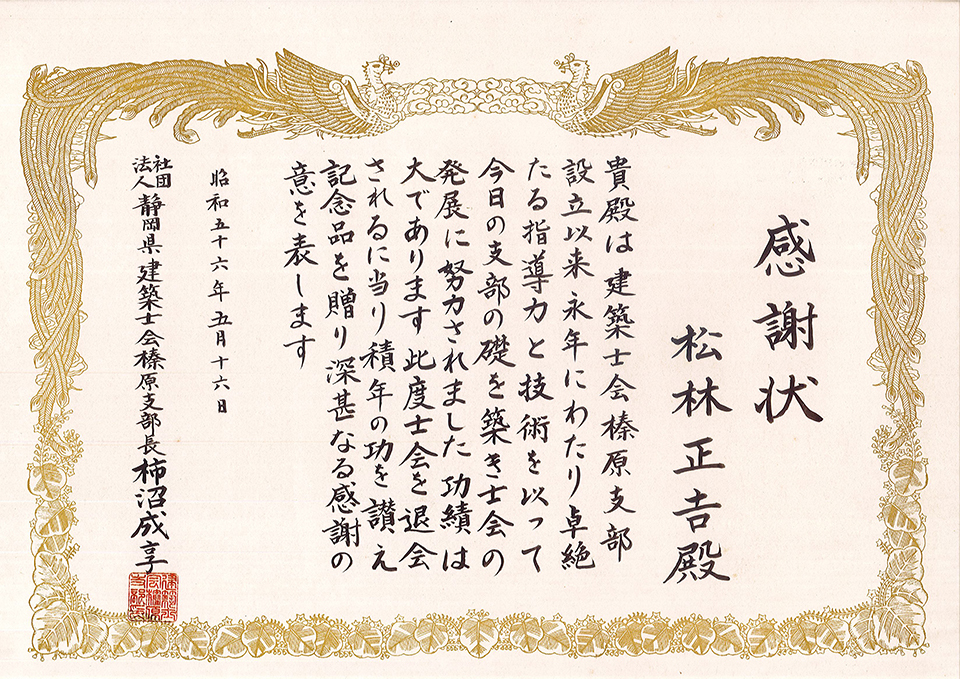 感謝状
松林正吉殿
貴殿は建築士会榛原支部
設立以来永年にわたり卓絶
たる指導力と技術を以って
今日の支部の礎を築き士会の
発展に努力されました功績は
大であります此度士会を退会
されるに当り積年の功を讃え
記念品を贈り深甚なる感謝の
意を表します
昭和五十六年五月十六日
社団法人静岡県建築士会榛原支部長柿沼成享